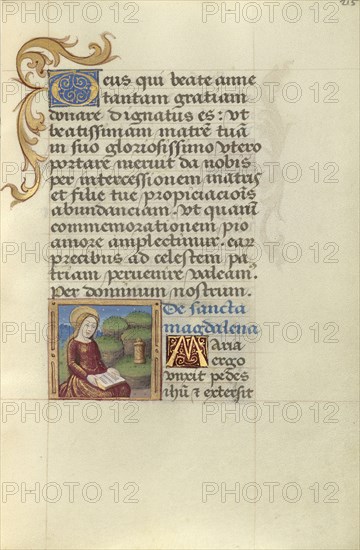 215
Deus qui beate anne
tantam gratiam
donare dignatus es: ut
beatissimam matrē tuā
in suo gloriosissimo utero
portare meruit da nobis
per intercessionem matris
et filie tue propiciaciois
abundanciam. ut quarū
commemorationem pio
amore amplectimur. earū
precibus ad celestem pa⸗
triam peruenire valeam⁹.
Per dominum nostrum.
De sancta
magdalena
Maria
ergo
vnxit pedes
ihū ⁊ extersit